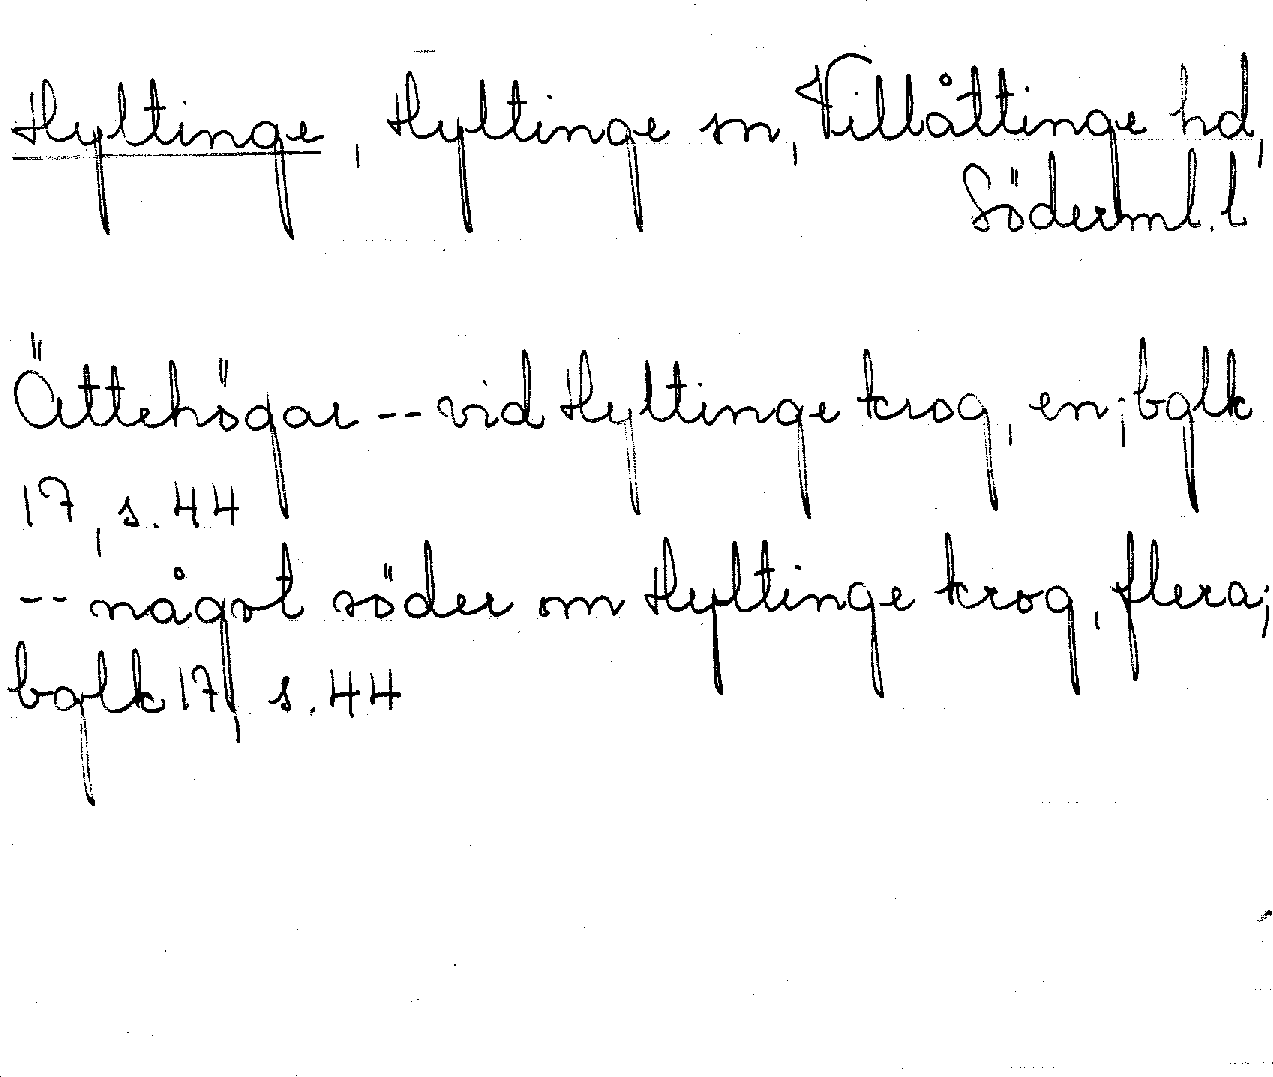 Hyltinge, Hyltinge sn, Villåttinge hd,
Söderml. l
Ättehögar -- vid Hyltinge krog, en; bglk
17, s. 44
-- något söder om Hyltinge krog, flera;
bglk 17, s. 44